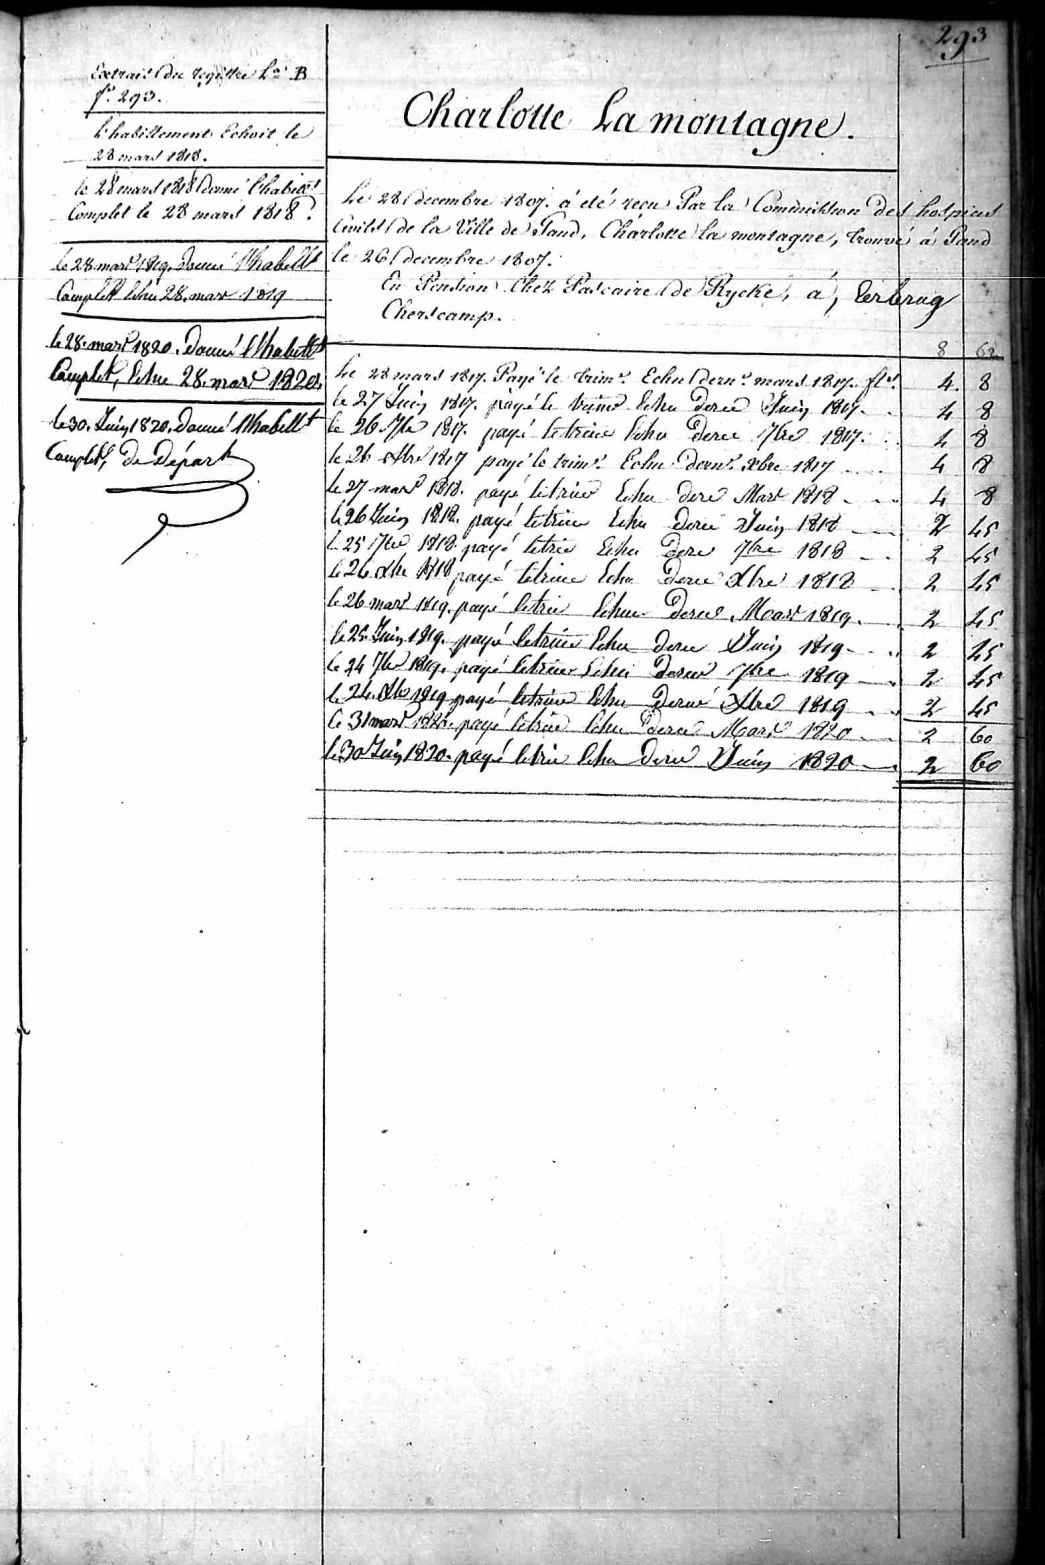 293
Extrait du registre La B
f° 293.
L'habillement Echoit le
28 mars 1818.
le 28 mars 1818 donné l'habillt
Complet le 28 mars 1818
le 28 mars 1819, donné l'habillt
Complet Echu 28 mars 1819
le 28 mars 1820. donné l'habillt
Complet, Echu 28 mars 1820.
le 30. Juin 1820, donné l'habillt
Complet, de Départ
Charlotte La montagne.
Le 28 decembre 1807. á été reçu Par la Commission des hospices
Civils de la Ville de Gand, Charlotte la montagne, trouvé á Gand
le 26 decembre 1807.
En Pension Chez Pascaire de Rycke, á, Terbrug
Cherscamp.
8
Le 28 mars 1817. Payé le trimre Echu dernr mars 1817. fls 4. 8
le 27 Juin 1817. payé le trime Echu dere Juin 1817. 4 8
le 26 7bre 1817. payé le trime Echu dere 7bre 1817. 4 8
le 26 xbre 1817 payé le trimre Echu dernr xbre 1817 4 8
le 27 mars 1818. payé le trime Echu dere Mars 1818 4 8
le 26 Juin 1818. payé le trime Echu dere Juin 1818 2 45
le 25 7bre 1818 payé le trie Echu dere 7bre 1818 2 45
le 24 xbre 1818 payé le trime Echu dere Xbre 1818 2 45
le 26 mars 1819. payé le trie Echu dere Mars 1819. 2 45
le 25 Juin 1819. payé le trime Echu dere Juin 1819 2 45
le 24 7bre 1819. payé le trime Echu dere 7bre 1819 2 45
le 24. Xbre 1819 payé le trime Echu dere Xbre 1819 2 45
le 31 mars 1820. payé le trie Echu dere Mars 1820 2 60
le 30 Juin 1820. payé le trie Echu dere Juin 1820 2 60